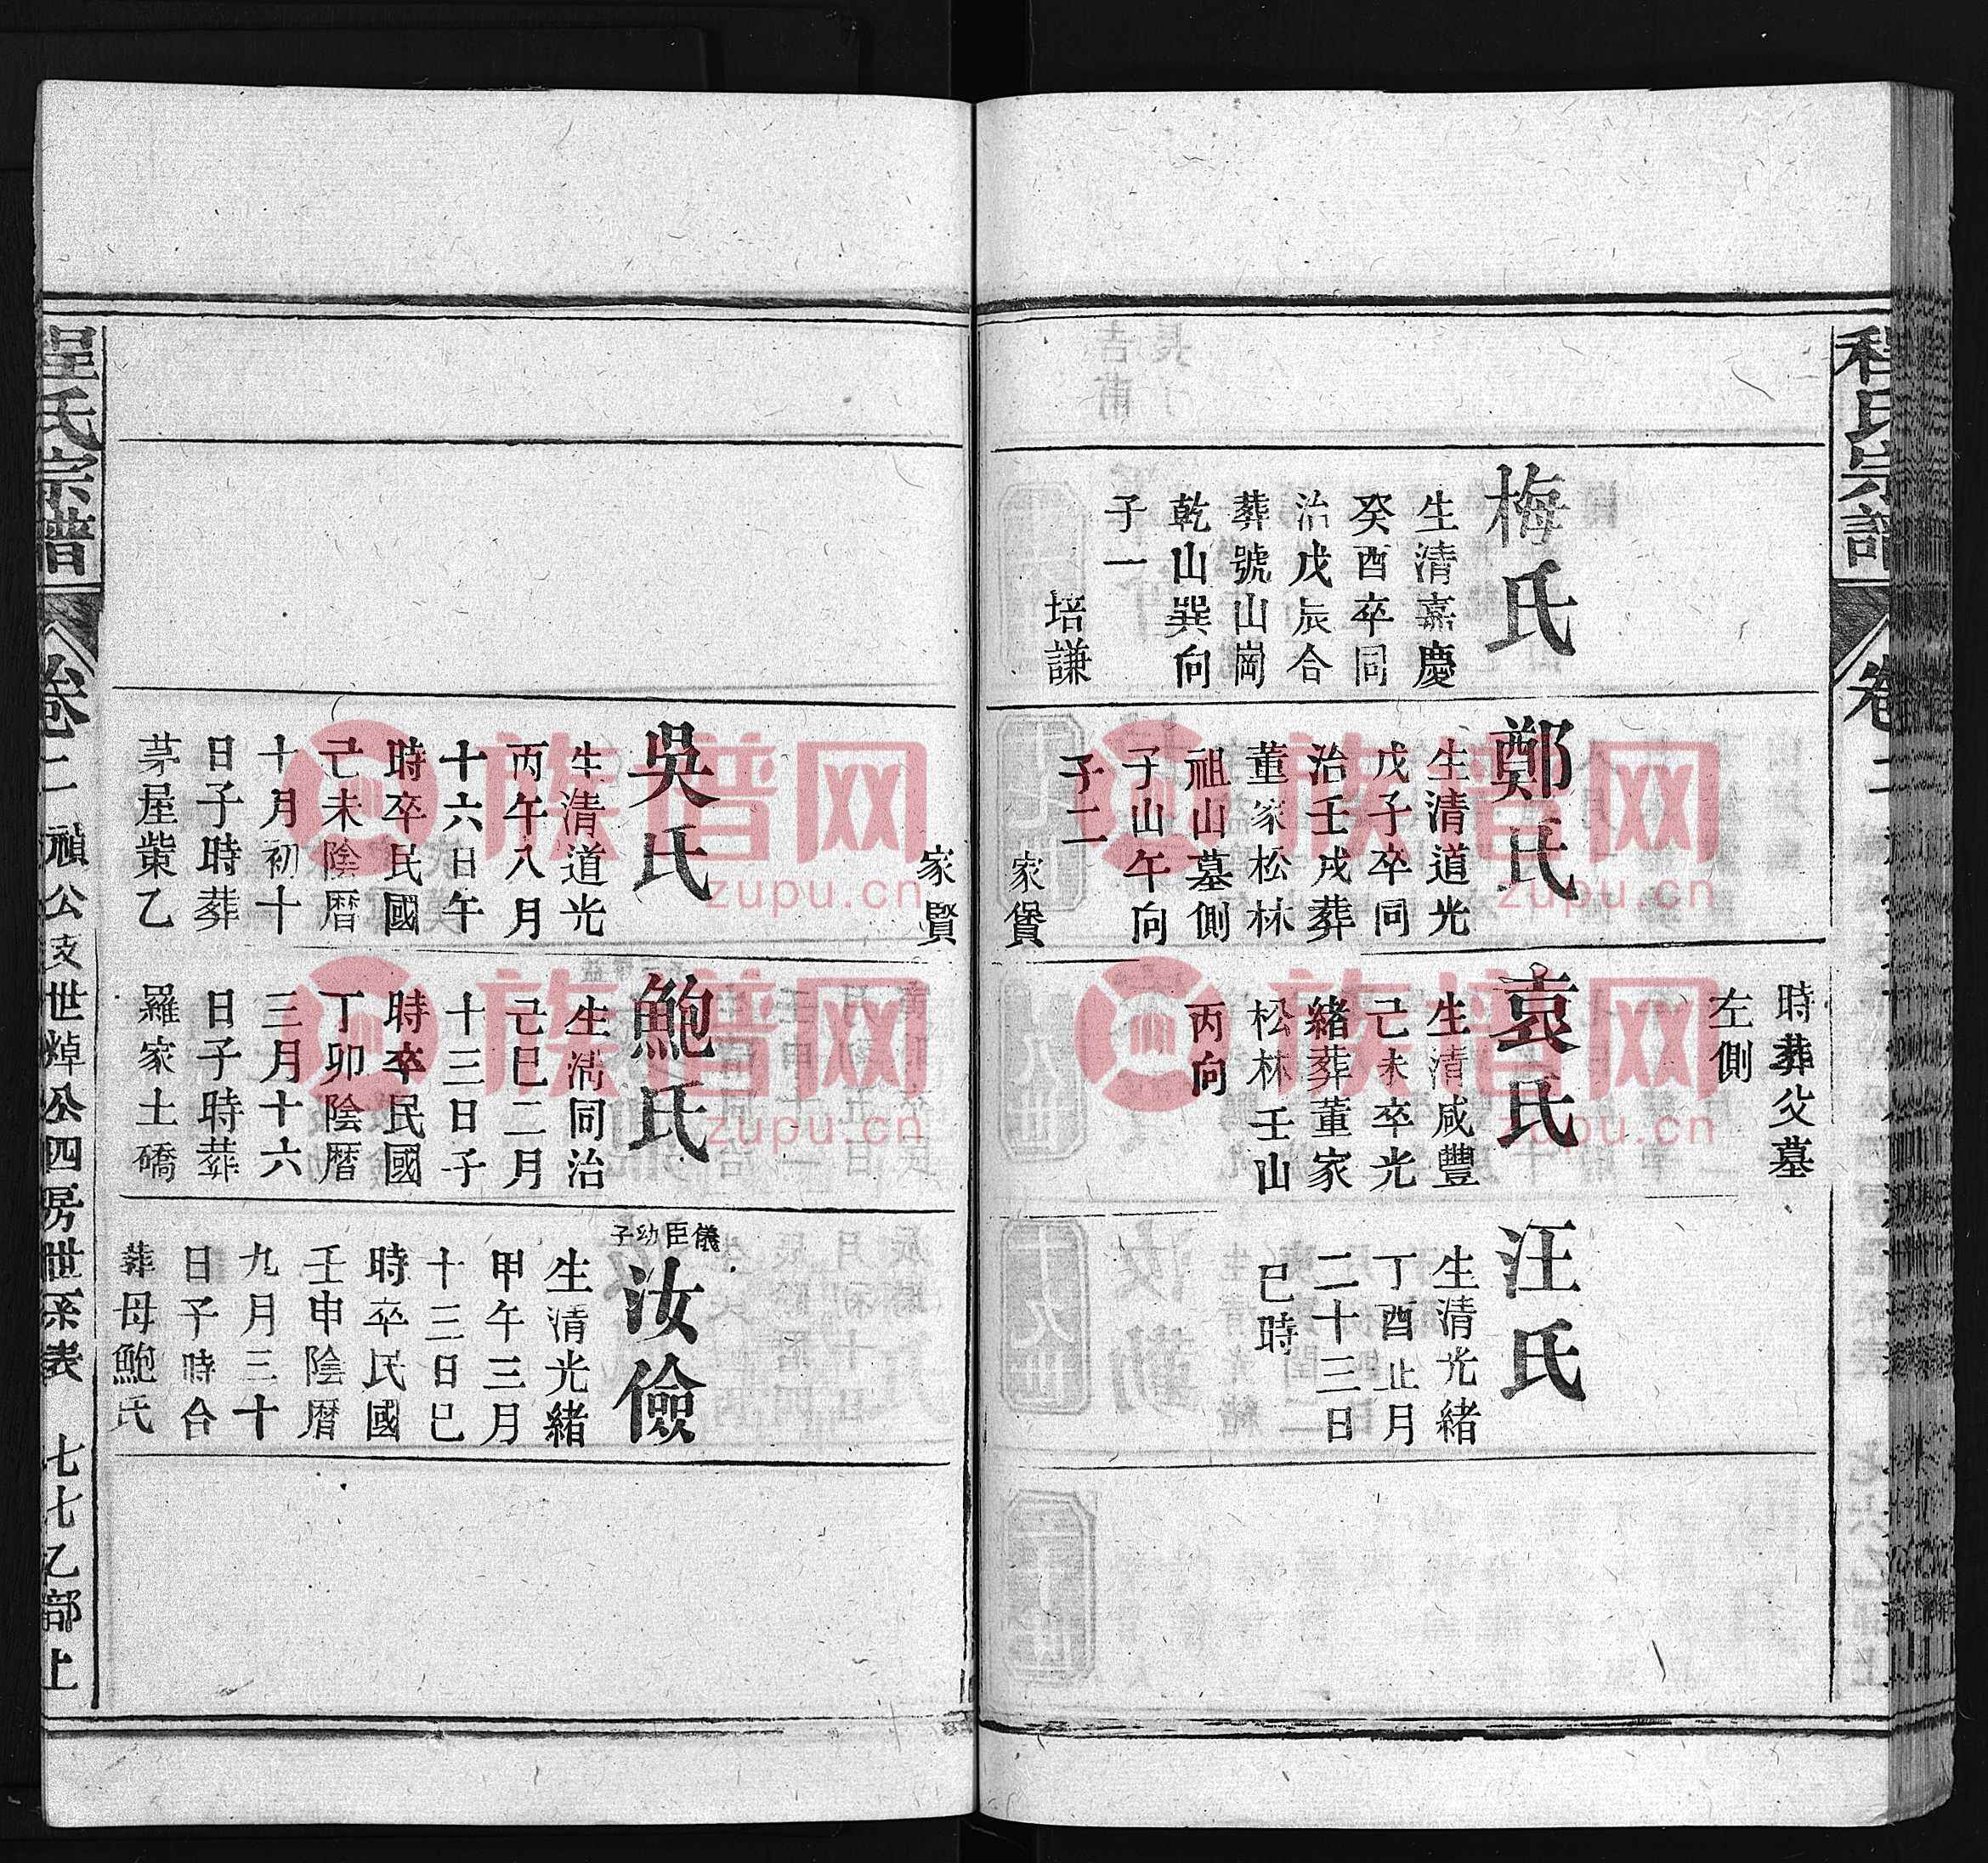 程氏宗譜
卷二
梅氏
生清嘉慶
癸酉卒同
治戊辰合
葬號山崗
乾山巽向
子一
培謙
鄭氏
生清道光
戊子卒同
治壬戌葬
董家松林
祖山墓側
子山午向
子二
家賞
家賢
時葬父墓
左側
袁氏
生清咸豐
己未卒光
緒葬董家
松林壬山
丙向
汪氏
生清光緒
丁酉正月
二十三日
巳時
吳氏
生清道光
丙午八月
十六日午
時卒民國
己未陰曆
十月初十
日子時葬
茅屋柴乙
鮑氏
生清同治
己巳二月
十三日子
時卒民國
丁卯陰曆
三月十六
日子時葬
羅家土磽
儀臣幼子
汝儉
生清光緒
甲午三月
十三日巳
時卒民國
壬申陰曆
九月三十
日子時合
葬母鮑氏
程氏宗譜
卷二
禎公支世焯公四房世系表
七七乙部上
族谱网
zupu.cn
族谱网
zupu.cn
族谱网
zupu.cn
族谱网
zupu.cn